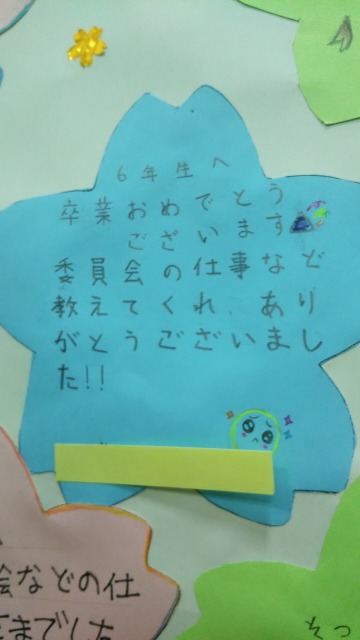 6年生へ
卒業おめでとう
ございます
委員会の仕事など
教えてくれ、あり
がとうございまし
た!!
会などの仕
までした
そっ